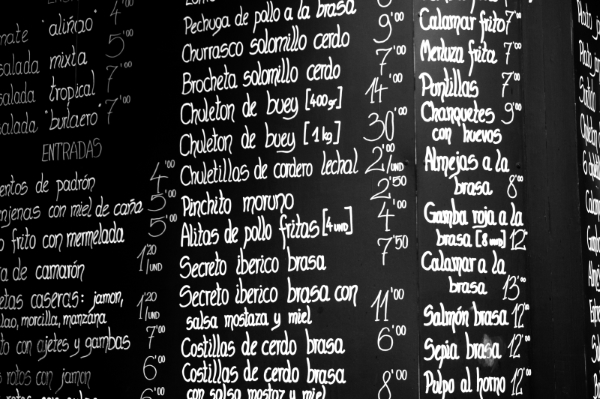 mate "aliñao" 4'00
salada mixta 5'00
salada tropical 7'00
salada "butaero" 7'00
ENTRADAS
entos de padrón 4'00
njenas con miel de caña 5'00
frito con mermelada 5'00
de camarón 1'20/UND
etas caseras: jamon, 1'20/UND
lao, morcilla, manzana
to con ajetes y gambas 7'00
rotos con jamon 6'00
6'00
Pechuga de pollo a la brasa
Churrasco solomillo cerdo 9'00
Brocheta solomillo cerdo 7'00
Chuleton de buey [400gr] 14'00
Chuleton de buey [1kg] 30'00
Chuletillas de cordero lechal 2'00/UND
Pinchito moruno 2'50
Alitas de pollo fritas [4 UND] 4'00
Secreto iberico brasa 7'50
Secreto iberico brasa con
salsa mostaza y miel 11'00
Costillas de cerdo brasa 6'00
Costillas de cerdo brasa
con salsa mostaza y miel 8'00
Calamar frito 7'00
Merluza frita 7'00
Puntillas 7'00
Chanquetes 9'00
con huevos
Almejas a la
brasa 8'00
Gamba roja a la
brasa [8 UND] 12'00
Calamar a la
brasa 13'00
Salmón brasa 12'00
Sepia brasa 12'00
Pulpo al horno 12'00